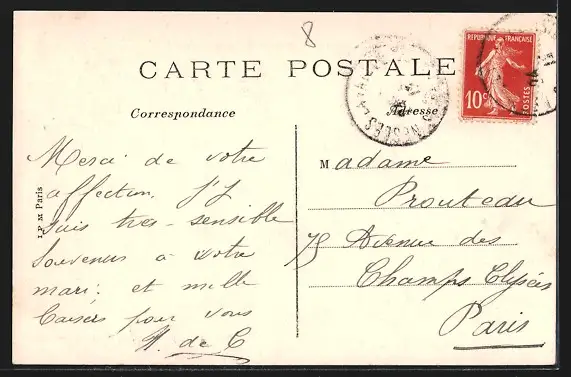 8
CARTE POSTALE
Correspondance
Adresse
REPUBLIQUE FRANÇAISE
10c
POSTES
NESLES
Merci de votre
affection. J'y
suis très-sensible
Souvenirs à votre
mari: et mille
baisers pour vous
de C
I P M Paris
Madame
Prouteau
75 Avenue des
Champs Elysées
Paris